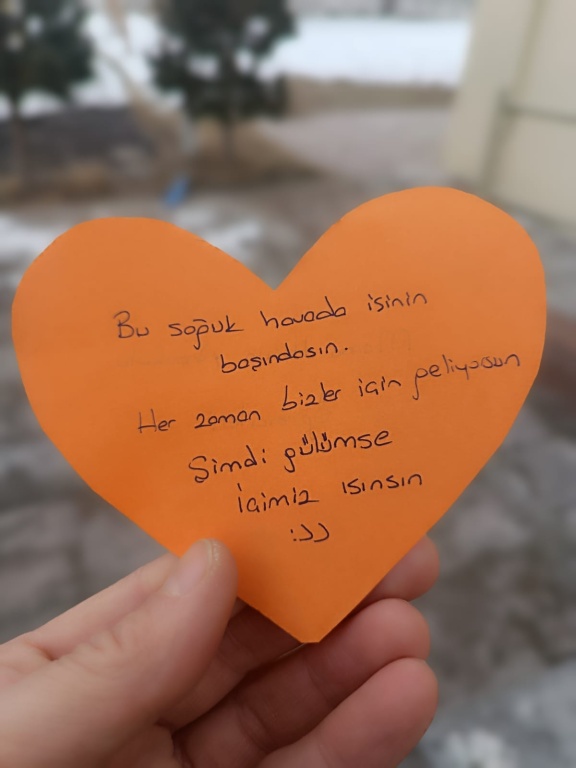 Bu soğuk havada işinin
başındasın.
Her zaman bizler için geliyosun
Şimdi gülümse
İçimiz ısınsın
:))